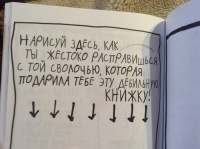 НАРИСУЙ ЗДЕСЬ, КАК
ТЫ ЖЕСТОКО РАСПРАВИШЬСЯ
С ТОЙ СВОЛОЧЬЮ, КОТОРАЯ
ПОДАРИЛА ТЕБЕ ЭТУ ДЕБИЛЬНУЮ
КНИЖКУ!